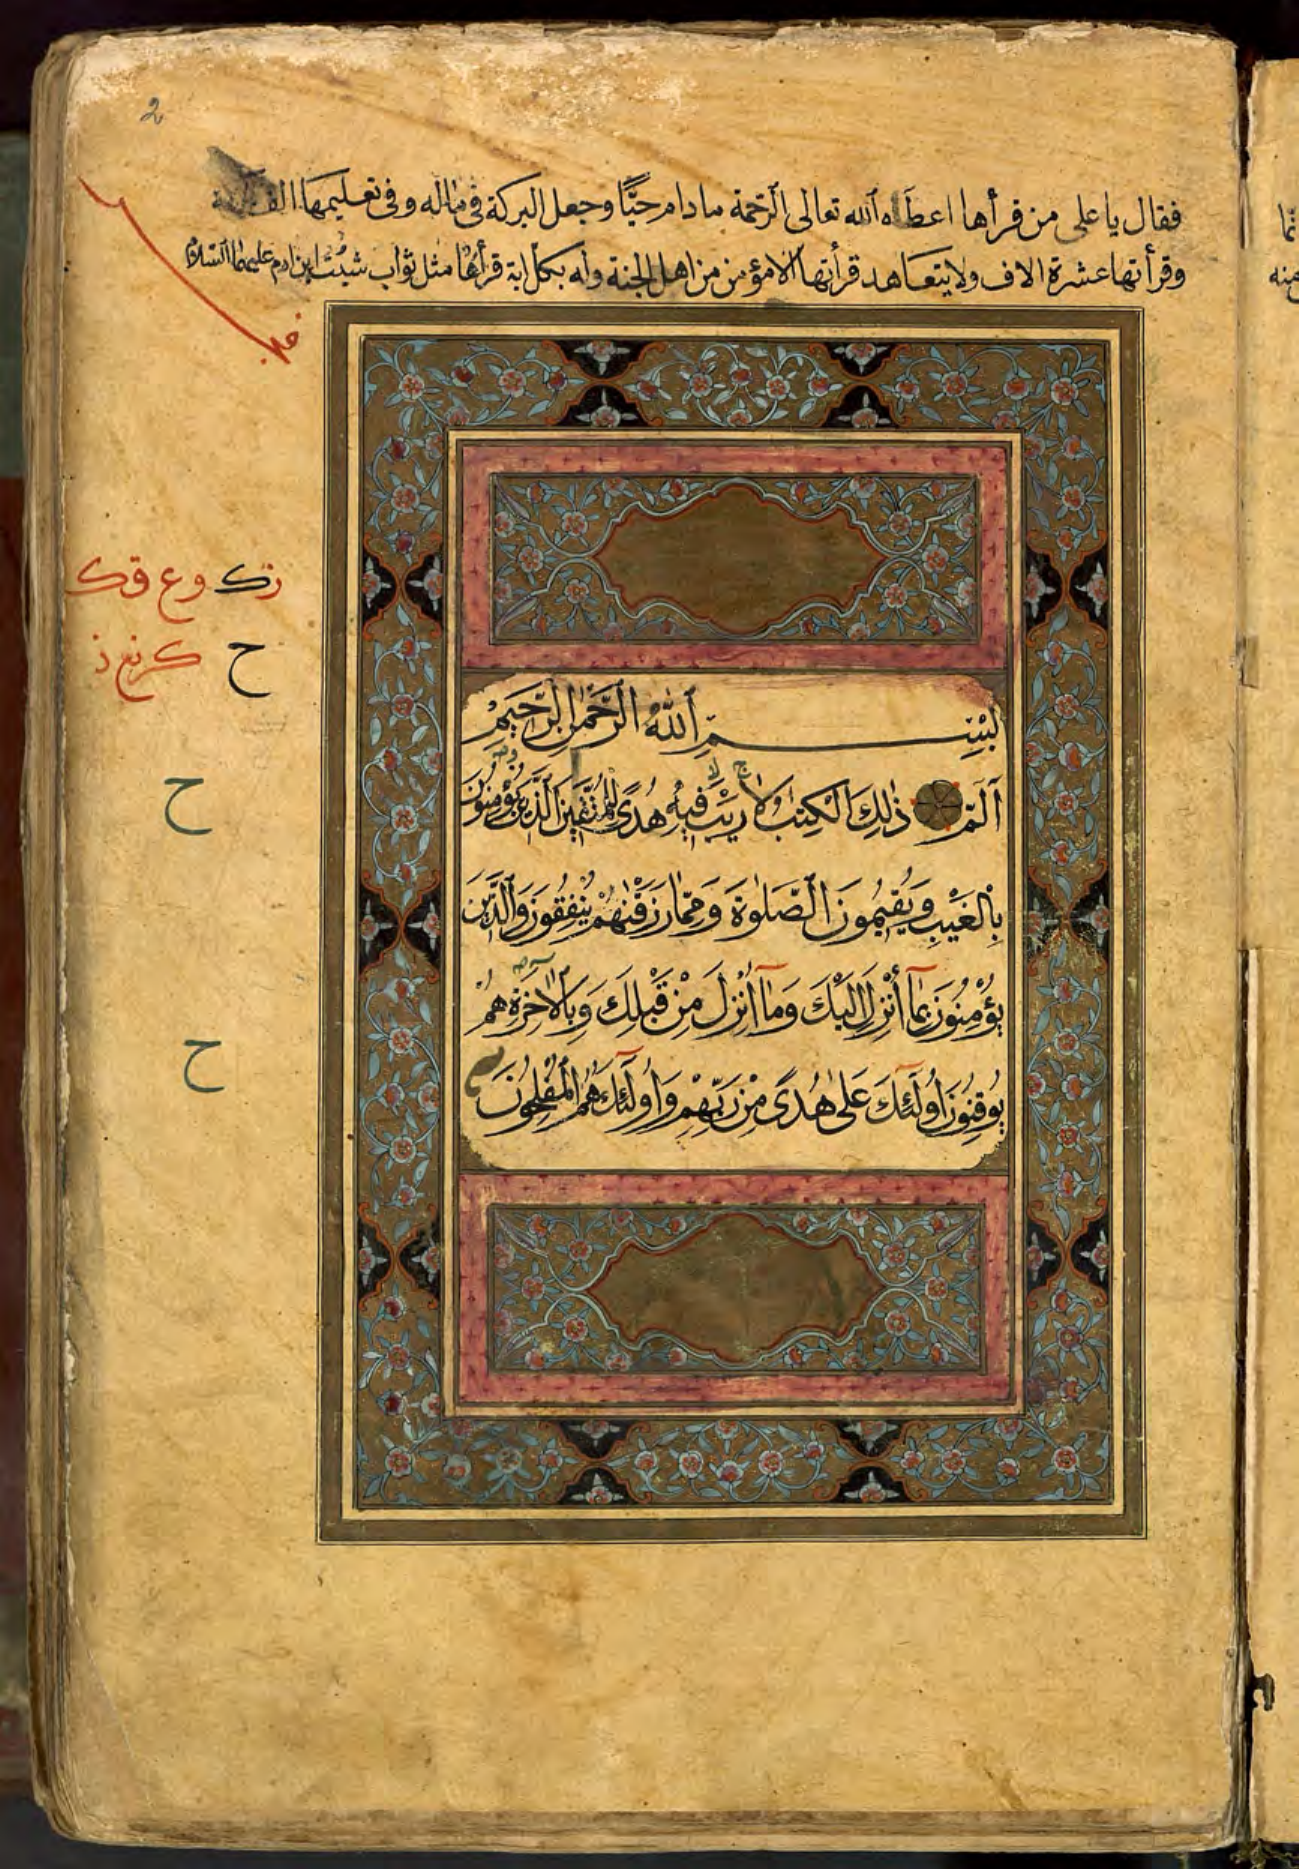 2
فقال يا على من قرأها اعطاه الله تعالى الرحمة مادام حيًّا وجعل البركة فى ماله وفى تعليمها
وقرأتها عشرة الاف ولا يتعاهد قرأتها الا مؤمن من اهل الجنة وله بكل اية قرأها مثل ثواب شيث ابن ادم عليهما السلام
بِسْمِ ٱللهِ ٱلرَّحْمٰنِ ٱلرَّحِيمِ
آلٓمّٓ ذٰلِكَ الْكِتٰبُ لَا رَيْبَ فِيهِ هُدًى لِلْمُتَّقِينَ الَّذِينَ يُؤْمِنُونَ
بِالْغَيْبِ وَيُقِيمُونَ الصَّلٰوةَ وَمِمَّا رَزَقْنٰهُمْ يُنْفِقُونَ وَالَّذِينَ
يُؤْمِنُونَ بِمَآ أُنْزِلَ إِلَيْكَ وَمَآ أُنْزِلَ مِنْ قَبْلِكَ وَبِالْاٰخِرَةِ هُمْ
يُوقِنُونَ أُولٰٓئِكَ عَلٰى هُدًى مِنْ رَبِّهِمْ وَأُولٰٓئِكَ هُمُ الْمُفْلِحُونَ
ح
ح
ح